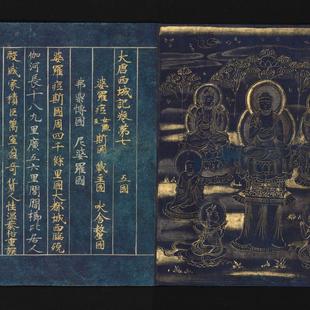 大唐西域記卷第七　五國
婆羅痆斯國　戰主國　吠舍釐國
弗栗恃國　尼婆羅國
婆羅痆斯國周四千餘里國大都城西臨殑
伽河長十八九里廣五六里閭閻櫛比居人
殷盛家積巨萬室盈奇貨人性溫恭俗重強